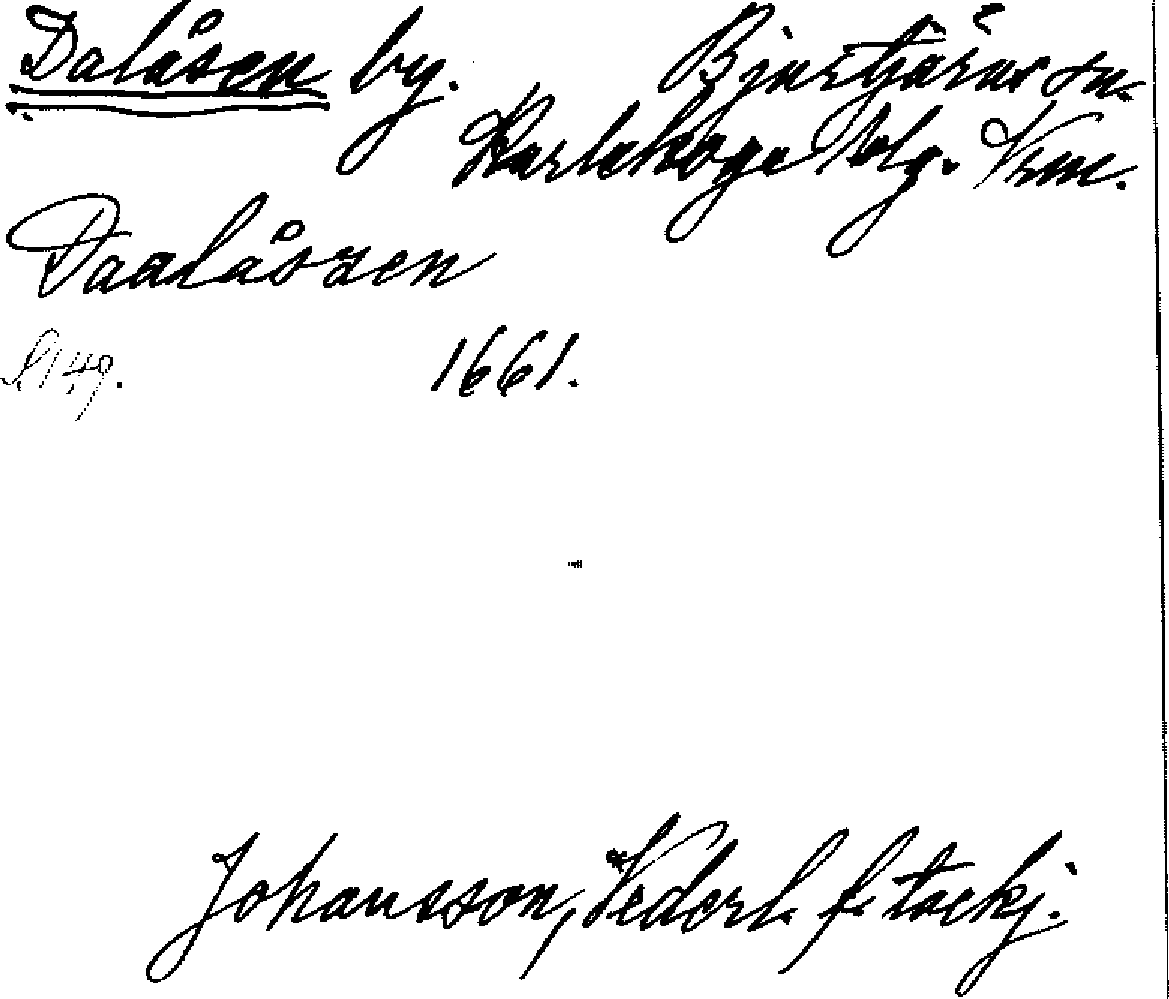 Dalåsen by. Bjurtjärns sn.
Karlskoga blg. Vrm.
Daalåszen
s. 149. 1661.
Johansson, Vederl. f. tackj.